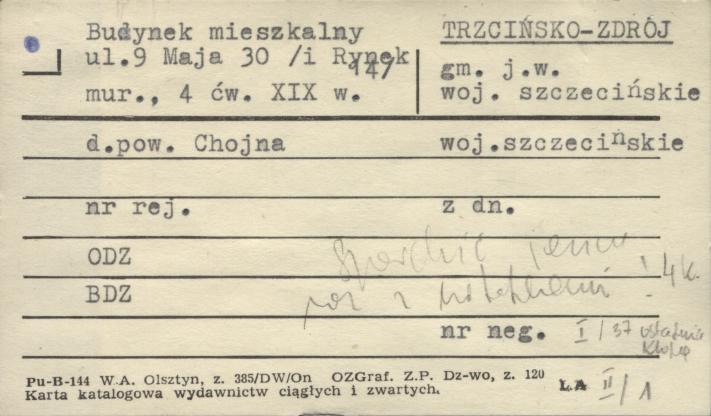 Budynek mieszkalny
ul.9 Maja 30 /i Rynek
147
mur., 4 ćw. XIX w.
TRZCIŃSKO-ZDRÓJ
gm. j.w.
woj. szczecińskie
d.pow. Chojna
woj.szczecińskie
nr rej.
z dn.
ODZ
BDZ
! 4k.
nr neg. I/37 ostatnia
klatka
Pu-B-144 W.A. Olsztyn, z. 385/DW/On OZGraf. Z.P. Dz-wo, z. 120
Karta katalogowa wydawnictw ciągłych i zwartych.
LA II/1